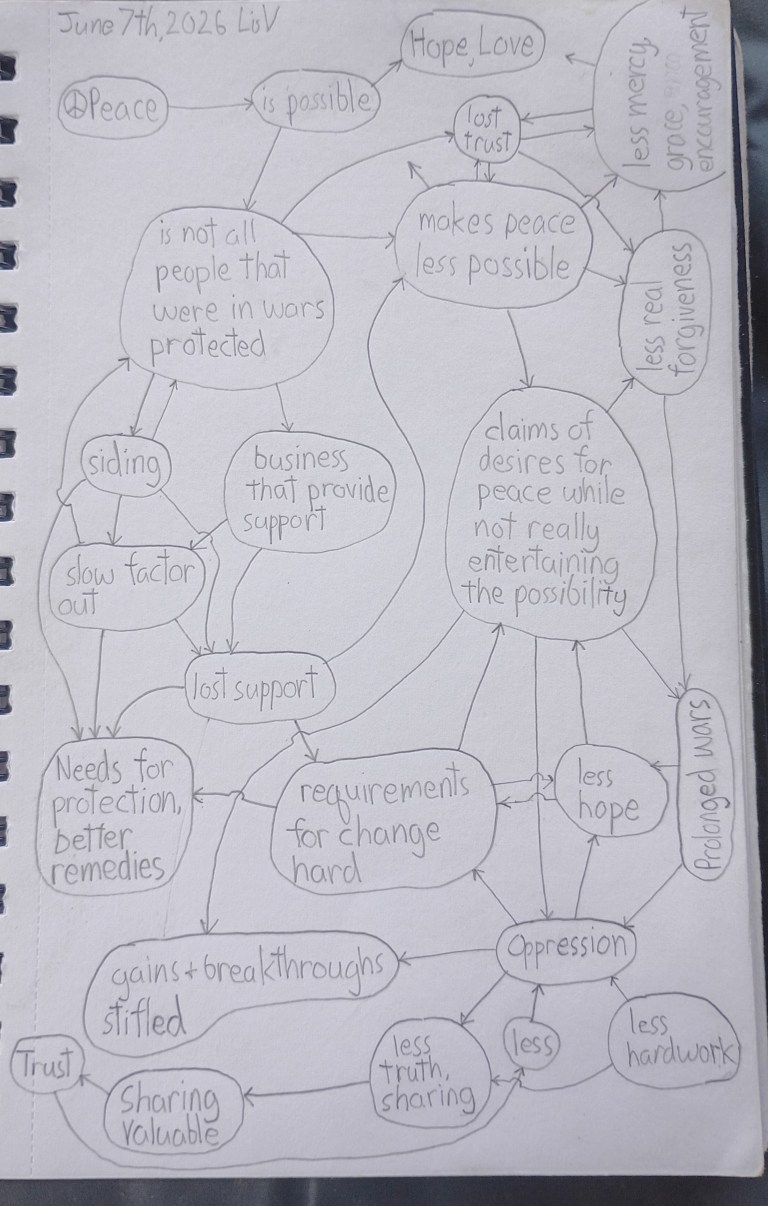 June 7th, 2026 LisV
Hope, Love
☮Peace
is possible
lost
trust
less mercy,
grace,
encouragement
is not all
people that
were in wars
protected
makes peace
less possible
less real
forgiveness
siding
business
that provide
support
claims of
desires for
peace while
not really
entertaining
the possibility
slow factor
out
lost support
Needs for
protection,
better
remedies
requirements
for change
hard
less
hope
Prolonged wars
Oppression
gains + breakthroughs
stifled
less
truth,
sharing
less
less
hardwork
Trust
Sharing
valuable